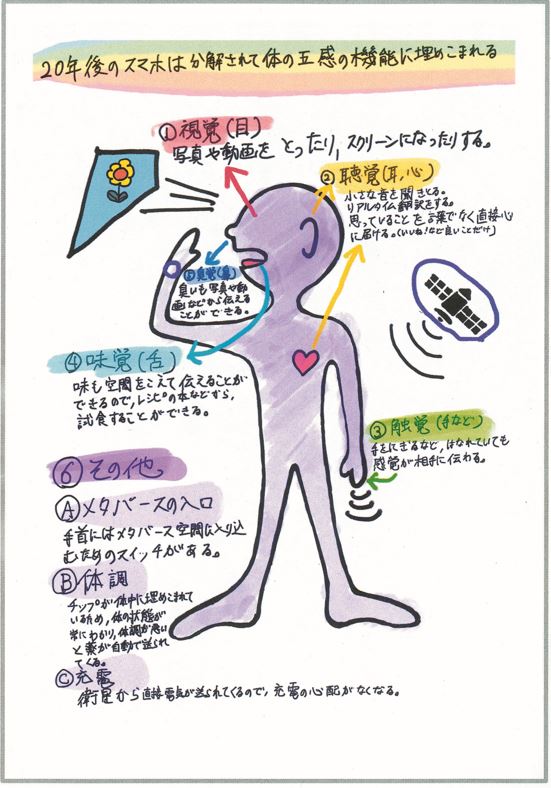 20年後のスマホは分解されて体の五感の機能に埋めこまれる
①視覚(目)
写真や動画をとったり、スクリーンになったりする。
②聴覚(耳,心)
小さな音を聞きとる。
リアルタイム翻訳をする。
思っていることを言葉でなく直接心
に届ける。(いいね!など良いことだけ)
⑤臭覚(鼻)
臭いも写真や動
画などから伝える
ことができる。
④味覚(舌)
味も空間をこえて伝えることが
できるので、レシピの本などから、
試食することができる。
③触覚(手など)
手をにぎるなど、はなれていても
感覚が相手に伝わる。
⑥その他
Ⓐメタバースの入口
手首にはメタバース空間に入り込
むためのスイッチがある。
Ⓑ体調
チップが体中に埋めこまれて
いるため、体の状態が
常にわかり、体調が悪い
と薬が自動で送られ
てくる。
Ⓒ充電
衛星から直接電気が送られてくるので、充電の心配がなくなる。